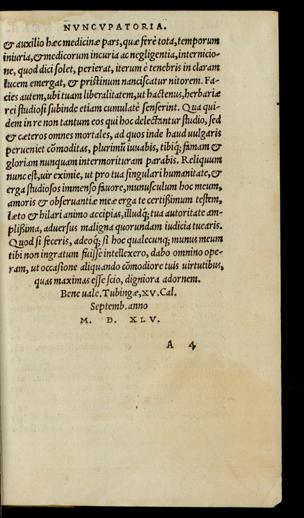 NVNCVPATORIA.
& auxilio hæc medicinæ pars, quæ ferè tota, temporum
iniuria, & medicorum incuria ac negligentia, internicio-
ne, quod dici solet, perierat, iterum è tenebris in claram
lucem emergat, & pristinum nanciscatur nitorem. Fa-
cies autem, ubi tuam liberalitatem, ut hactenus, herbariæ
rei studiosi subinde etiam cumulatè senserint. Qua qui-
dem in re non tantum eos qui hoc delectantur studio, sed
& cæteros omnes mortales, ad quos inde haud uulgaris
perueniet cõmoditas, plurimũ iuuabis, tibiq; famam &
gloriam nunquam intermorituram parabis. Reliquum
nunc est, uir eximie, ut pro tua singulari humanitate, &
erga studiosos immenso fauore, munusculum hoc meum,
amoris & obseruantiæ meæ erga te certissimum testem,
læto & hilari animo accipias, illudq; tua autoritate am-
plißima, aduersus maligna quorundam iudicia tuearis.
Quod si feceris, adeoq; si hoc qualecunq; munus meum
tibi non ingratum fuisse intellexero, dabo omnino ope-
ram, ut occasione aliquando cõmodiore tuis uirtutibus,
quas maximas esse scio, digniora adornem.
Bene uale. Tubingæ, XV. Cal.
Septemb. anno
M. D. XLV.
A 4